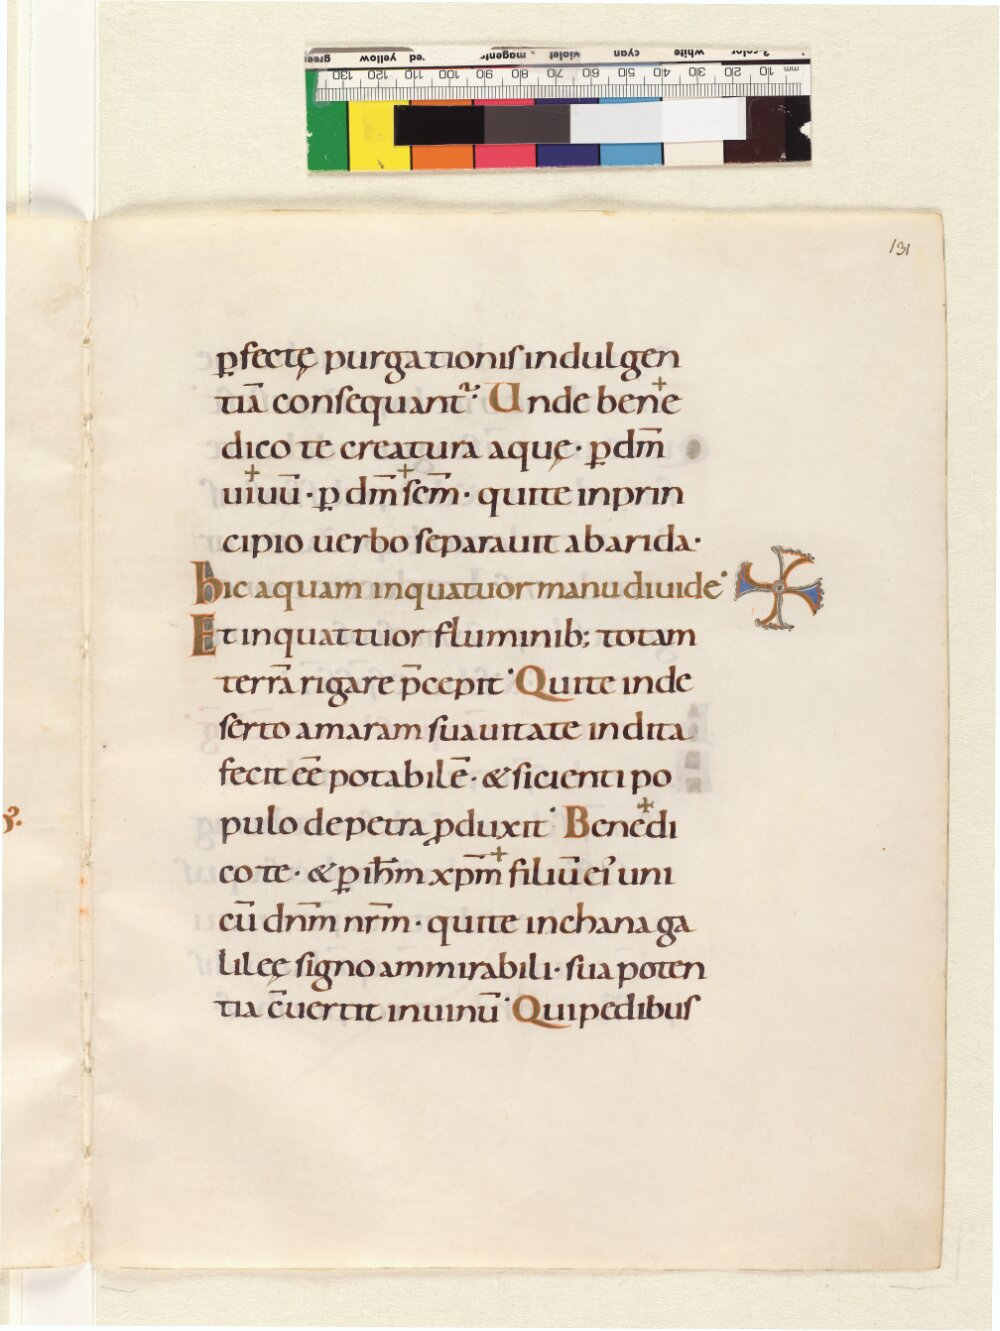 131
ꝑfectę purgationiſ indulgen
tiā conſequant᷑· Unde bene
dico te creatura aquę· ꝑ dm̄
uiuū· ꝑ dm̄ ſcm̄· qui te in prin
cipio uerbo ſeparauit ab arida·
hic aquam in quatuor manu diuide·
Et in quattuor fluminib; totam
terrā rigare p̄cepit· Qui te in de
ſerto amaram ſuauitate indita
fecit eē potabilē· & ſicienti po
pulo de petra ꝓduxit· Benedi
co te· & ꝑ ih̄m xp̄m filiū ei᾿ uni
cū dnm̄ nrm̄· qui te in chana ga
lileę ſigno ammirabili· ſua poten
tia c̄uertit in uinū· Qui pedibuſ